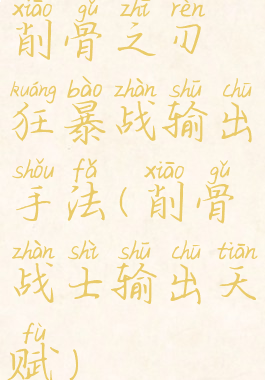 xiāo gǔ zhī rèn
削骨之刃
kuáng bào zhàn shū chū
狂暴战输出
shǒu fǎ xiāo gǔ
手法(削骨
zhàn shì shū chū tiān
战士输出天
fù
赋)